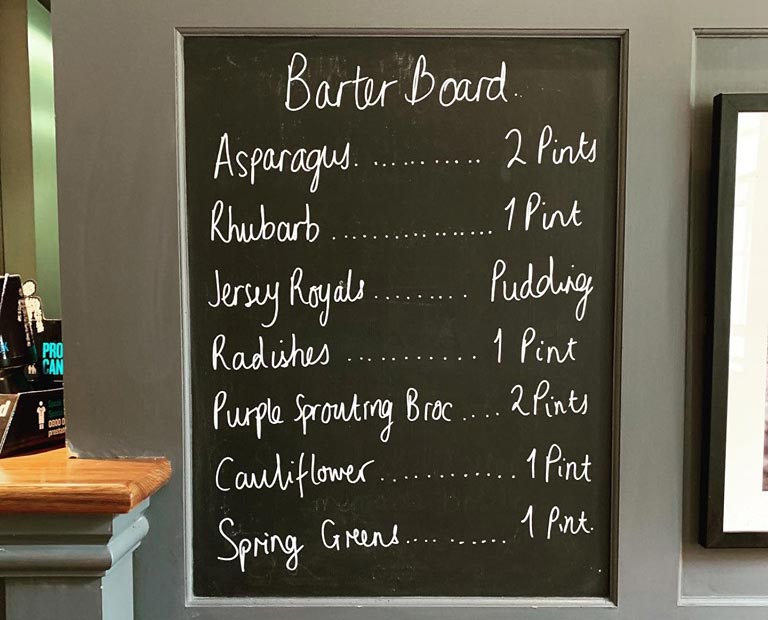 Barter Board
Asparagus. .......... 2 Pints
Rhubarb ................ 1 Pint
Jersey Royals ......... Pudding
Radishes ........... 1 Pint
Purple Sprouting Broc .... 2 Pints
Cauliflower ............. 1 Pint
Spring Greens ........... 1 Pint.
PRO
CAN
0800 0
prostat